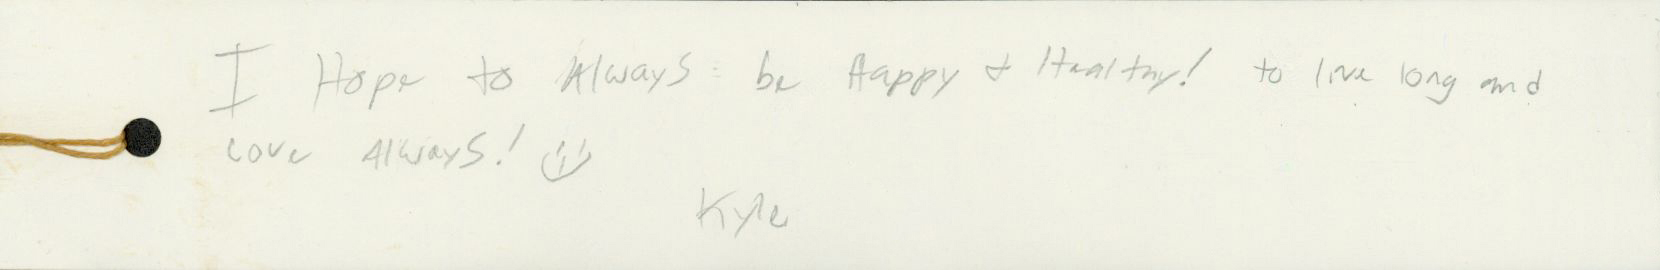 I Hope to Always be Happy & Healthy! to live long and
love Always! 
Kyle